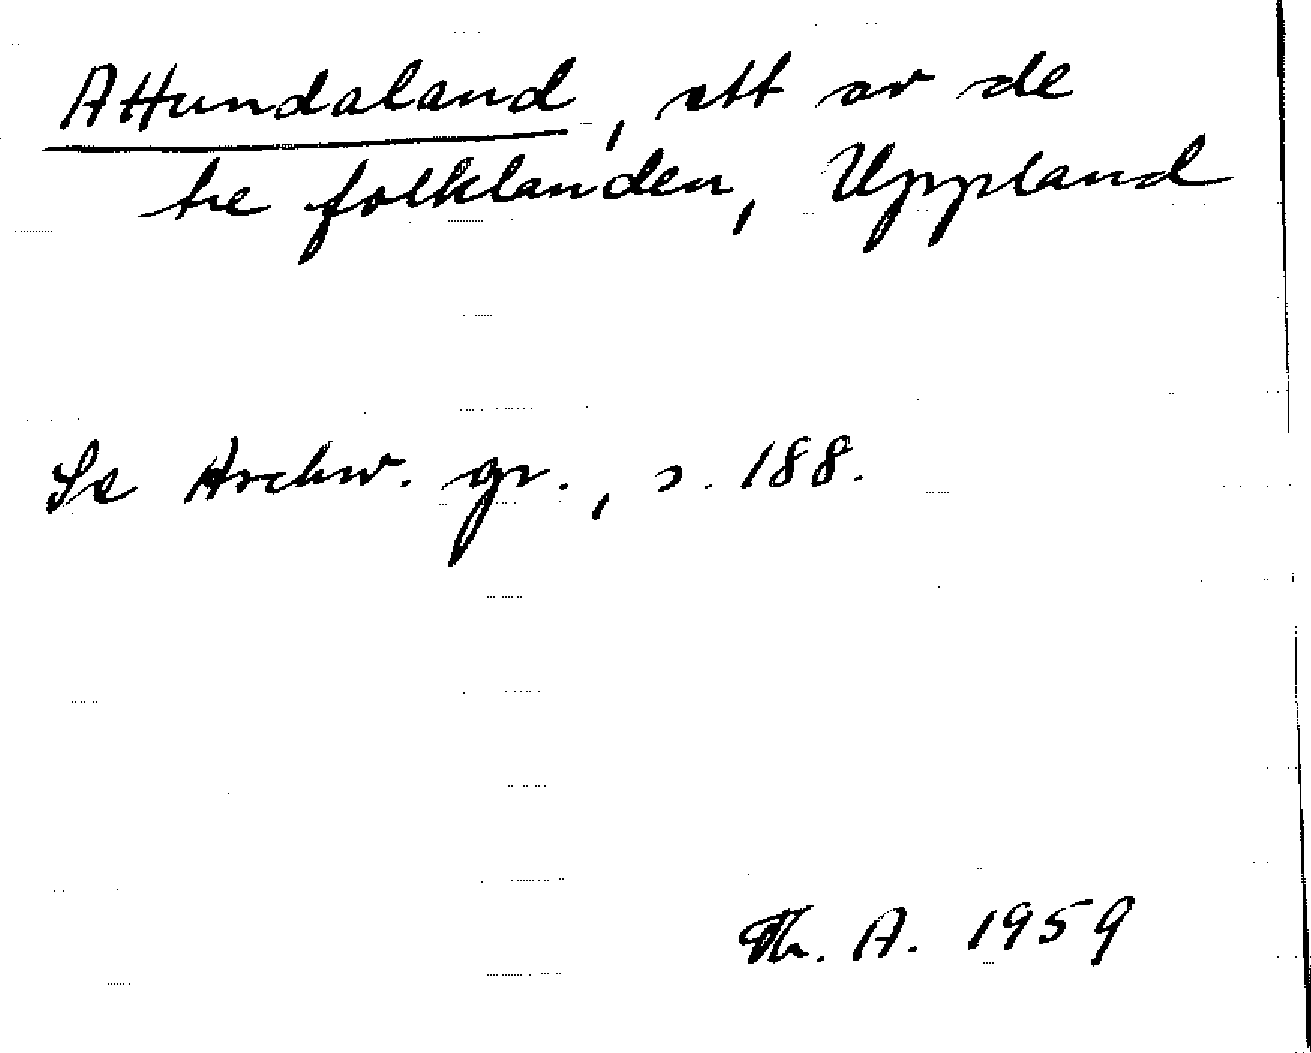 Attundaland, ett av de
tre folklanden, Uppland
Se Archiv. gr., s. 188.
Th. A. 1959